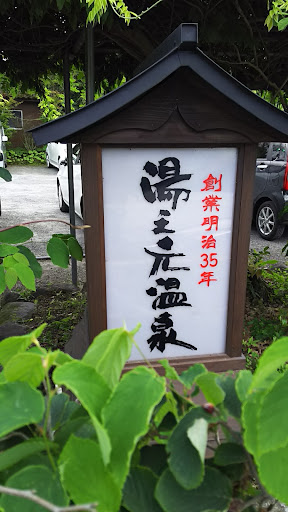 創業明治35年
湯之元温泉